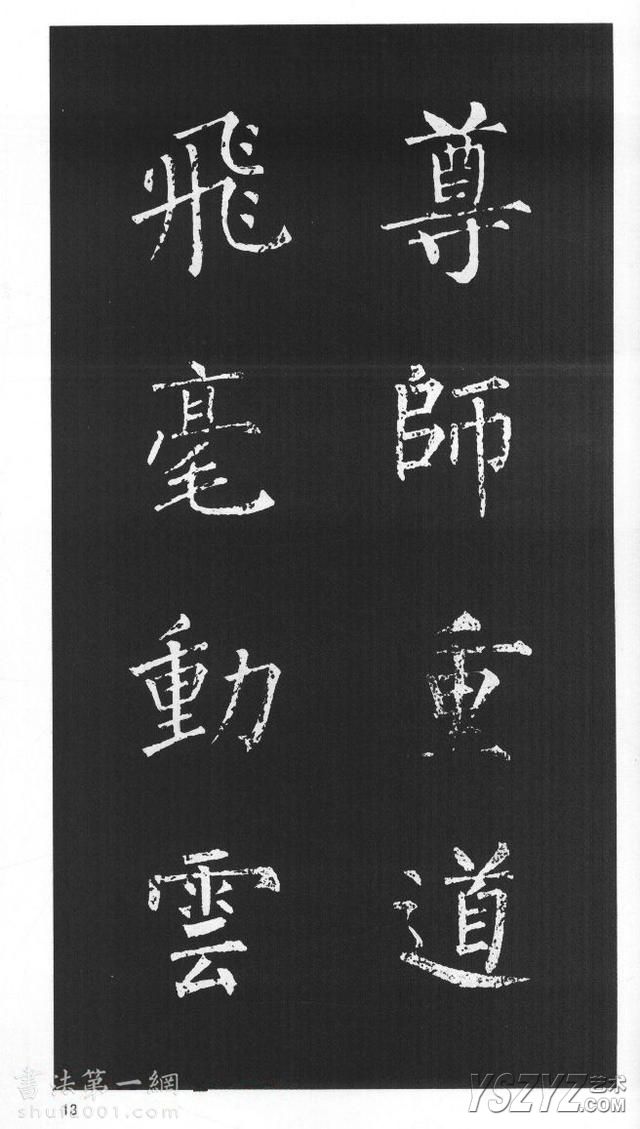 尊師重道
飛毫動雲
書法第一網
shufa001.com
13
YSZYZ艺术
.COM